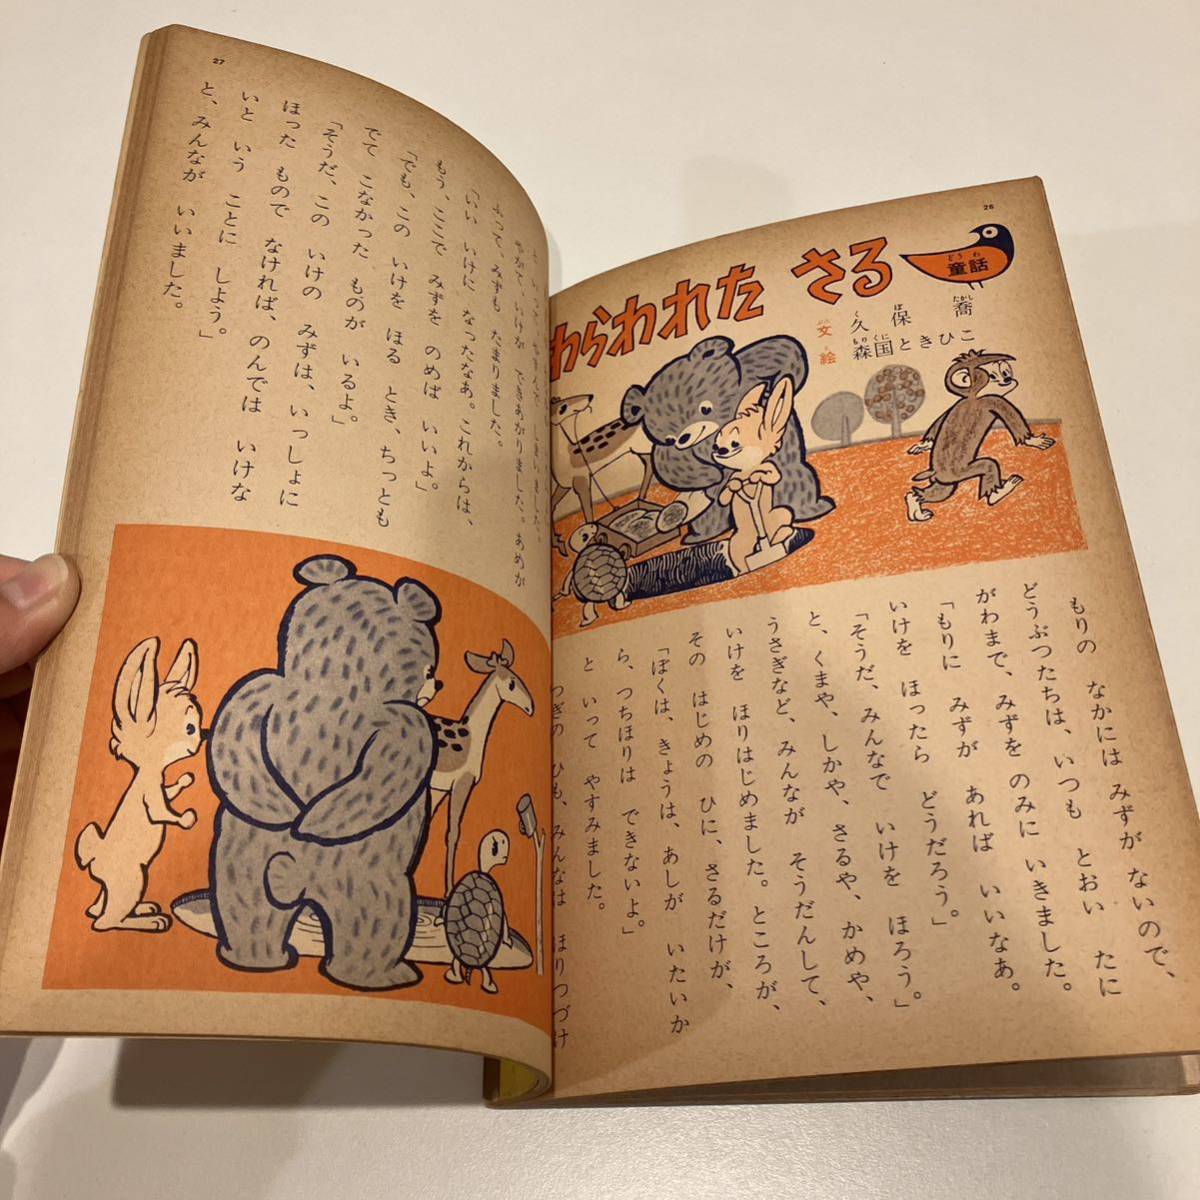 26
どうわ
童話
わらわれた さる
ぶん 文 くぼ たかし 久保 喬
え 絵 もりくに 森国ときひこ
もりの なかには みずが ないので、
どうぶつたちは、いつも とおい たに
がわまで、みずを のみに いきました。
「もりに みずが あれば いいなあ。
いけを ほったら どうだろう。」
「そうだ、みんなで いけを ほろう。」
と、くまや、しかや、さるや、かめや、
うさぎなど、みんなが そうだんして、
いけを ほりはじめました。ところが、
その はじめの ひに、さるだけが、
「ぼくは、きょうは、あしが いたいか
ら、つちほりは できないよ。」
と いって やすみました。
つぎの ひも、みんなは ほりつづけ
27
やがて、いけが できあがりました。あめが
ふって、みずも たまりました。
「いい いけに なったなあ。これからは、
もう、ここで みずを のめば いいよ。」
「でも、この いけを ほる とき、ちっとも
でて こなかった ものが いるよ。」
「そうだ、この いけの みずは、いっしょに
ほった もので なければ、のんでは いけな
いと いう ことに しよう。」
と、みんなが いいました。